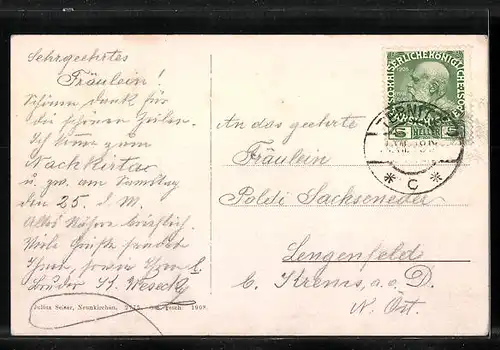 Sehrgeehrtes
Fräulein!
Schönen Dank für
die schönen Zeilen.
Ich komme zum
Nachkirtag
u. zw. am Samstag
den 25. d. M.
Alles Nähere brieflich.
Viele Grüße sendet
Ihnen, sowie Ihrem
Bruder St. Weseck
Julius Seiser, Neunkirchen. 1909.
KAISERLICHE KÖNIGLICHE
5 HELLER 5
* C *
An das geehrte
Fräulein
Poldi Sachseneder
Lengenfeld
b. Krems, a. d. D.
N. Öst.